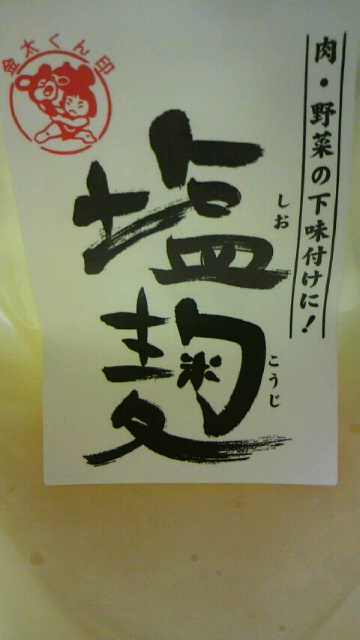 金太くん印
肉・野菜の下味付けに!
塩麹
しお
こうじ